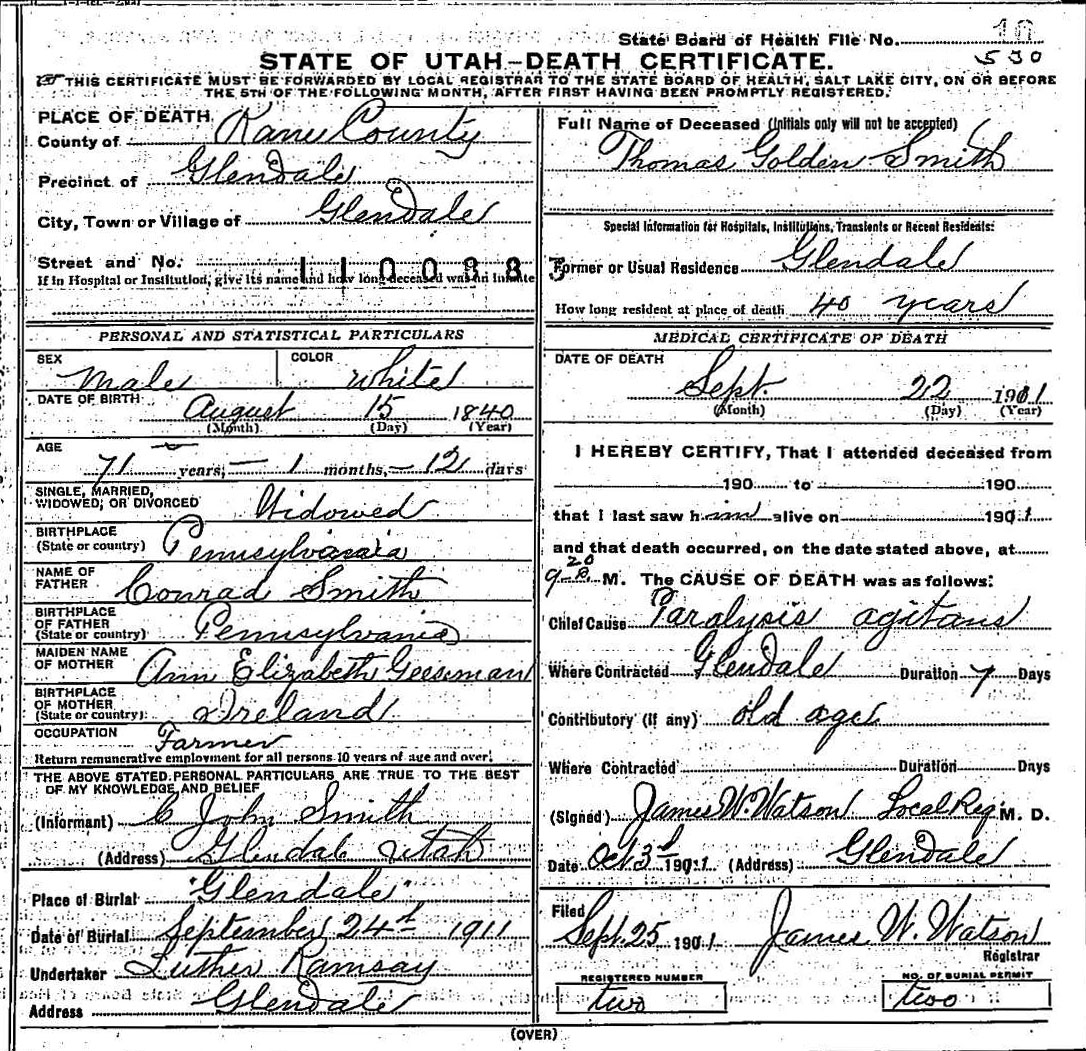 State Board of Health File No. 18
530
STATE OF UTAH—DEATH CERTIFICATE.
THIS CERTIFICATE MUST BE FORWARDED BY LOCAL REGISTRAR TO THE STATE BOARD OF HEALTH, SALT LAKE CITY, ON OR BEFORE
THE 5TH OF THE FOLLOWING MONTH, AFTER FIRST HAVING BEEN PROMPTLY REGISTERED.
PLACE OF DEATH
County of Kane County
Precinct of Glendale
City, Town or Village of Glendale
Street and No.
1100985
If in Hospital or Institution, give its name and how long deceased was an inmate
PERSONAL AND STATISTICAL PARTICULARS
SEX Male COLOR White
DATE OF BIRTH August 15 1840
(Month) (Day) (Year)
AGE
71 years, – 1 months, – 12 days
SINGLE, MARRIED,
WIDOWED, OR DIVORCED Widowed
BIRTHPLACE
(State or country) Pennsylvania
NAME OF
FATHER Conrad Smith
BIRTHPLACE
OF FATHER
(State or country) Pennsylvania
MAIDEN NAME
OF MOTHER Ann Elizabeth Geeseman
BIRTHPLACE
OF MOTHER
(State or country) Ireland
OCCUPATION Farmer
Return remunerative employment for all persons 10 years of age and over.
THE ABOVE STATED PERSONAL PARTICULARS ARE TRUE TO THE BEST
OF MY KNOWLEDGE AND BELIEF
(Informant) C John Smith
(Address) Glendale Utah
Place of Burial "Glendale"
Date of Burial September 24th 1911
Undertaker Luther Ramsay
Address Glendale
Full Name of Deceased (Initials only will not be accepted)
Thomas Golden Smith
Special Information for Hospitals, Institutions, Transients or Recent Residents:
Former or Usual Residence Glendale
How long resident at place of death 40 years
MEDICAL CERTIFICATE OF DEATH
DATE OF DEATH
Sept. 22 1911
(Month) (Day) (Year)
I HEREBY CERTIFY, That I attended deceased from
190 to 190
that I last saw him alive on 1901
and that death occurred, on the date stated above, at
9-20 M. The CAUSE OF DEATH was as follows:
Chief Cause Paralysis agitans
Where Contracted Glendale Duration 7 Days
Contributory (if any) old age
Where Contracted Duration Days
(Signed) James W. Watson Local Reg M. D.
Date Oct 3d 1911 (Address) Glendale
Filed
Sept. 25 1911 James W. Watson
Registrar
REGISTERED NUMBER
two
NO. OF BURIAL PERMIT
two
(OVER)